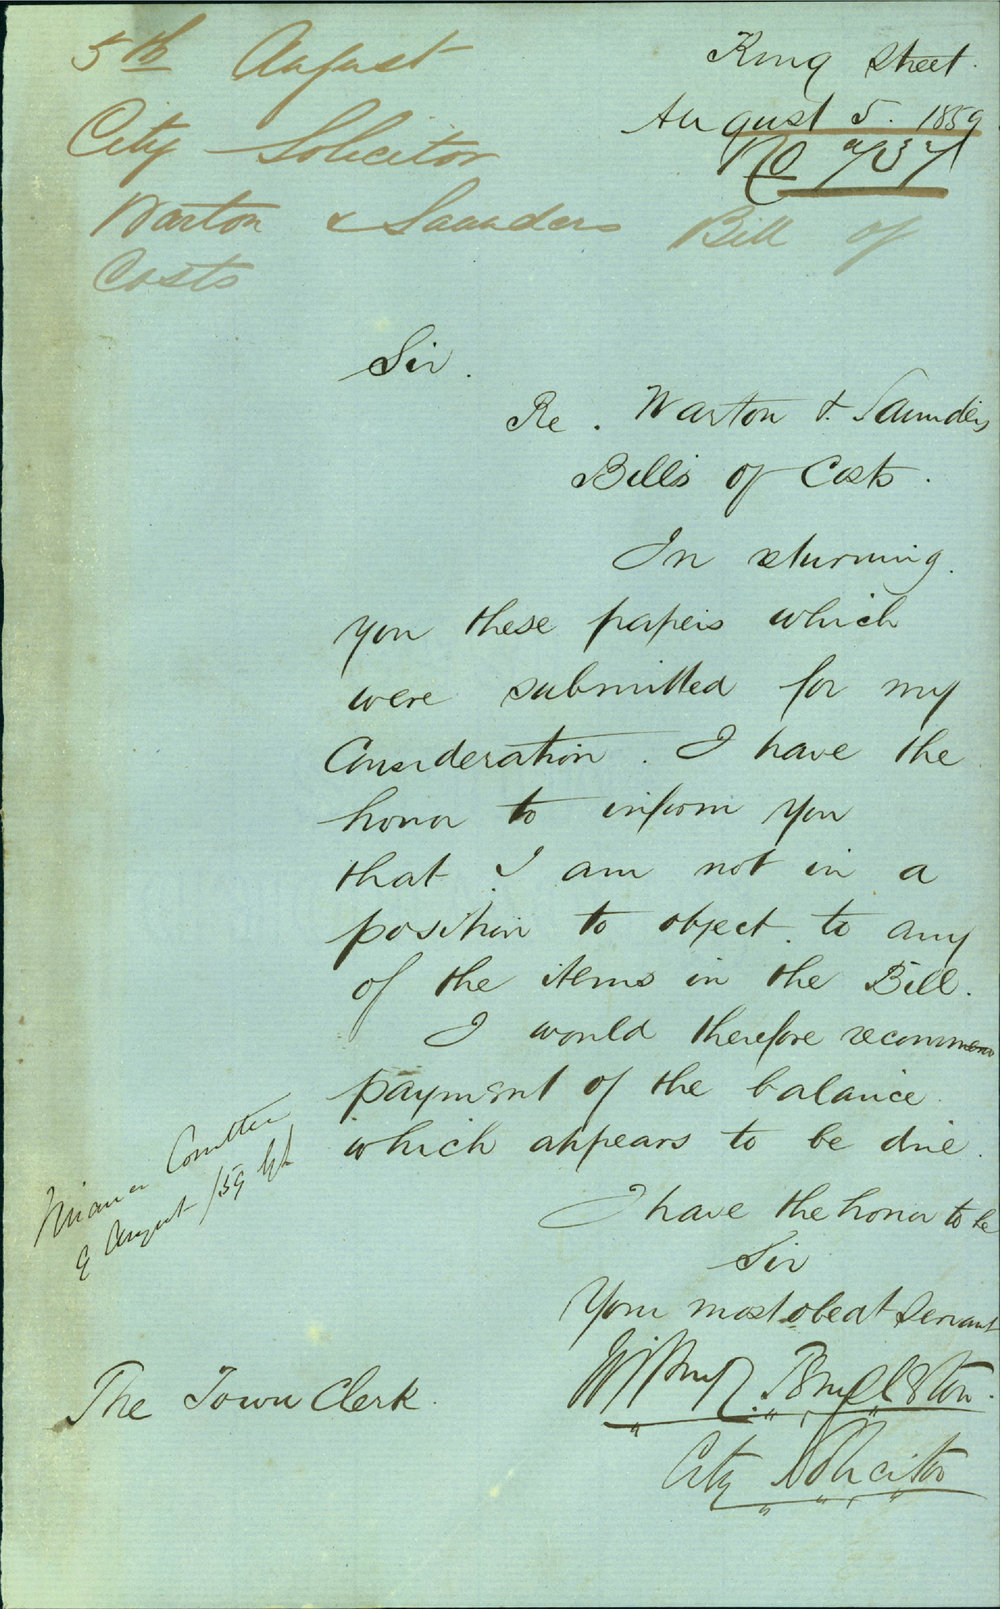 5th August
City Solicitor
Warton & Saunders Bill of
Costs
King Street.
August 5. 1859
No 737
Sir.
Re. Warton & Saunders
Bills of Costs.
In returning
you these papers which
were submitted for my
Consideration. I have the
honor to inform you
that I am not in a
position to object to any
of the items in the Bill.
I would therefore recommend
payment of the balance
which appears to be due.
I have the honor to be
Sir
Your most obedt Servant
City Solicitor
Finance Comttee
9 August /59
The Town Clerk.